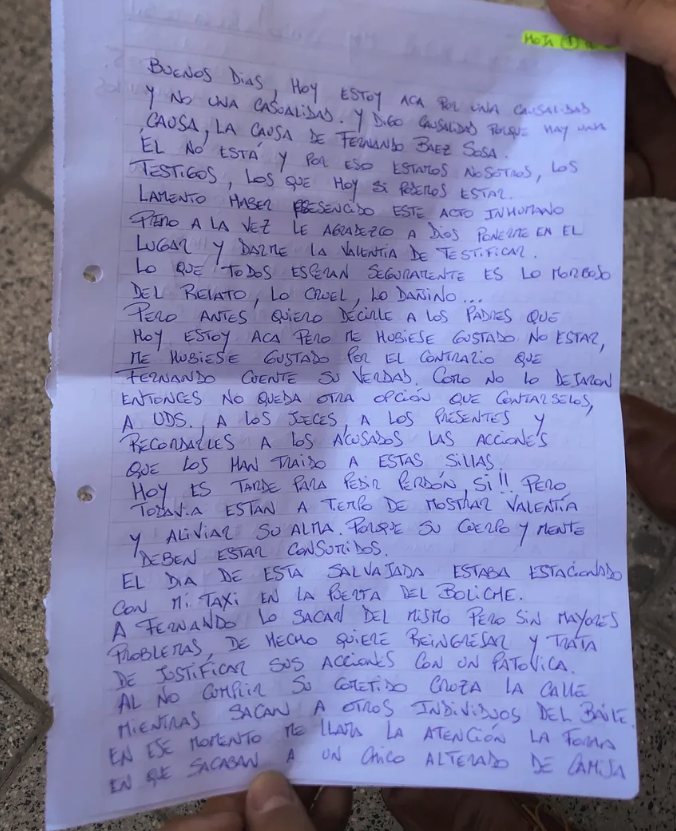 HOJA ①
BUENOS DIAS, HOY ESTOY ACA POR UNA CAUSALIDAD
Y NO UNA CASUALIDAD. Y DIGO CAUSALIDAD PORQUE HAY UNA
CAUSA, LA CAUSA DE FERNANDO BAEZ SOSA.
ÉL NO ESTÁ Y POR ESO ESTAMOS NOSOTROS, LOS
TESTIGOS, LOS QUE HOY SI PODEMOS ESTAR.
LAMENTO HABER PRESENCIDO ESTE ACTO INHUMANO
PERO A LA VEZ LE AGRADEZCO A DIOS PONERME EN EL
LUGAR Y DARME LA VALENTIA DE TESTIFICAR.
LO QUE TODOS ESPERAN SEGURAMENTE ES LO MORBOSO
DEL RELATO, LO CRUEL, LO DAÑINO...
PERO ANTES QUIERO DECIRLE A LOS PADRES QUE
HOY ESTOY ACA PERO ME HUBIESE GUSTADO NO ESTAR,
ME HUBIESE GUSTADO POR EL CONTRARIO QUE
FERNANDO CUENTE SU VERDAD. COMO NO LO DEJARON
ENTONCES NO QUEDA OTRA OPCIÓN QUE CONTARSELOS,
A UDS., A LOS JUECES, A LOS PRESENTES Y
RECORDARLES A LOS ACUSADOS LAS ACCIONES
QUE LOS HAN TRAIDO A ESTAS SILLAS.
HOY ES TARDE PARA PEDIR PERDÓN, SI!! PERO
TODAVIA ESTAN A TIEMPO DE MOSTRAR VALENTIA
Y ALIVIAR SU ALMA. PORQUE SU CUERPO Y MENTE
DEBEN ESTAR CONSUMIDOS.
EL DIA DE ESTA SALVAJADA ESTABA ESTACIONADO
CON MI TAXI EN LA PUERTA DEL BOLICHE.
A FERNANDO LO SACAN DEL MISMO PERO SIN MAYORES
PROBLEMAS, DE HECHO QUIERE REINGRESAR Y TRATA
DE JUSTIFICAR SUS ACCIONES CON UN PATOVICA.
AL NO CUMPLIR SU COMETIDO CRUZA LA CALLE
MIENTRAS SACAN A OTROS INDIVIDUOS DEL BAILE.
EN ESE MOMENTO ME LLAMA LA ATENCIÓN LA FORMA
EN QUE SACABAN A UN CHICO ALTERADO DE CAMISA